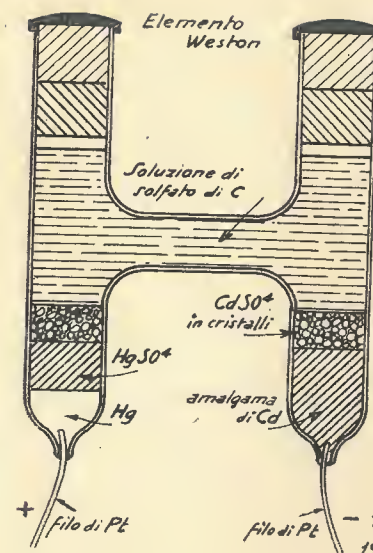 Elemento
Weston
Soluzione di
solfato di C
CdSO4
in cristalli
HgSO4
Hg
amalgama
di Cd
+
filo di Pt
filo di Pt
-